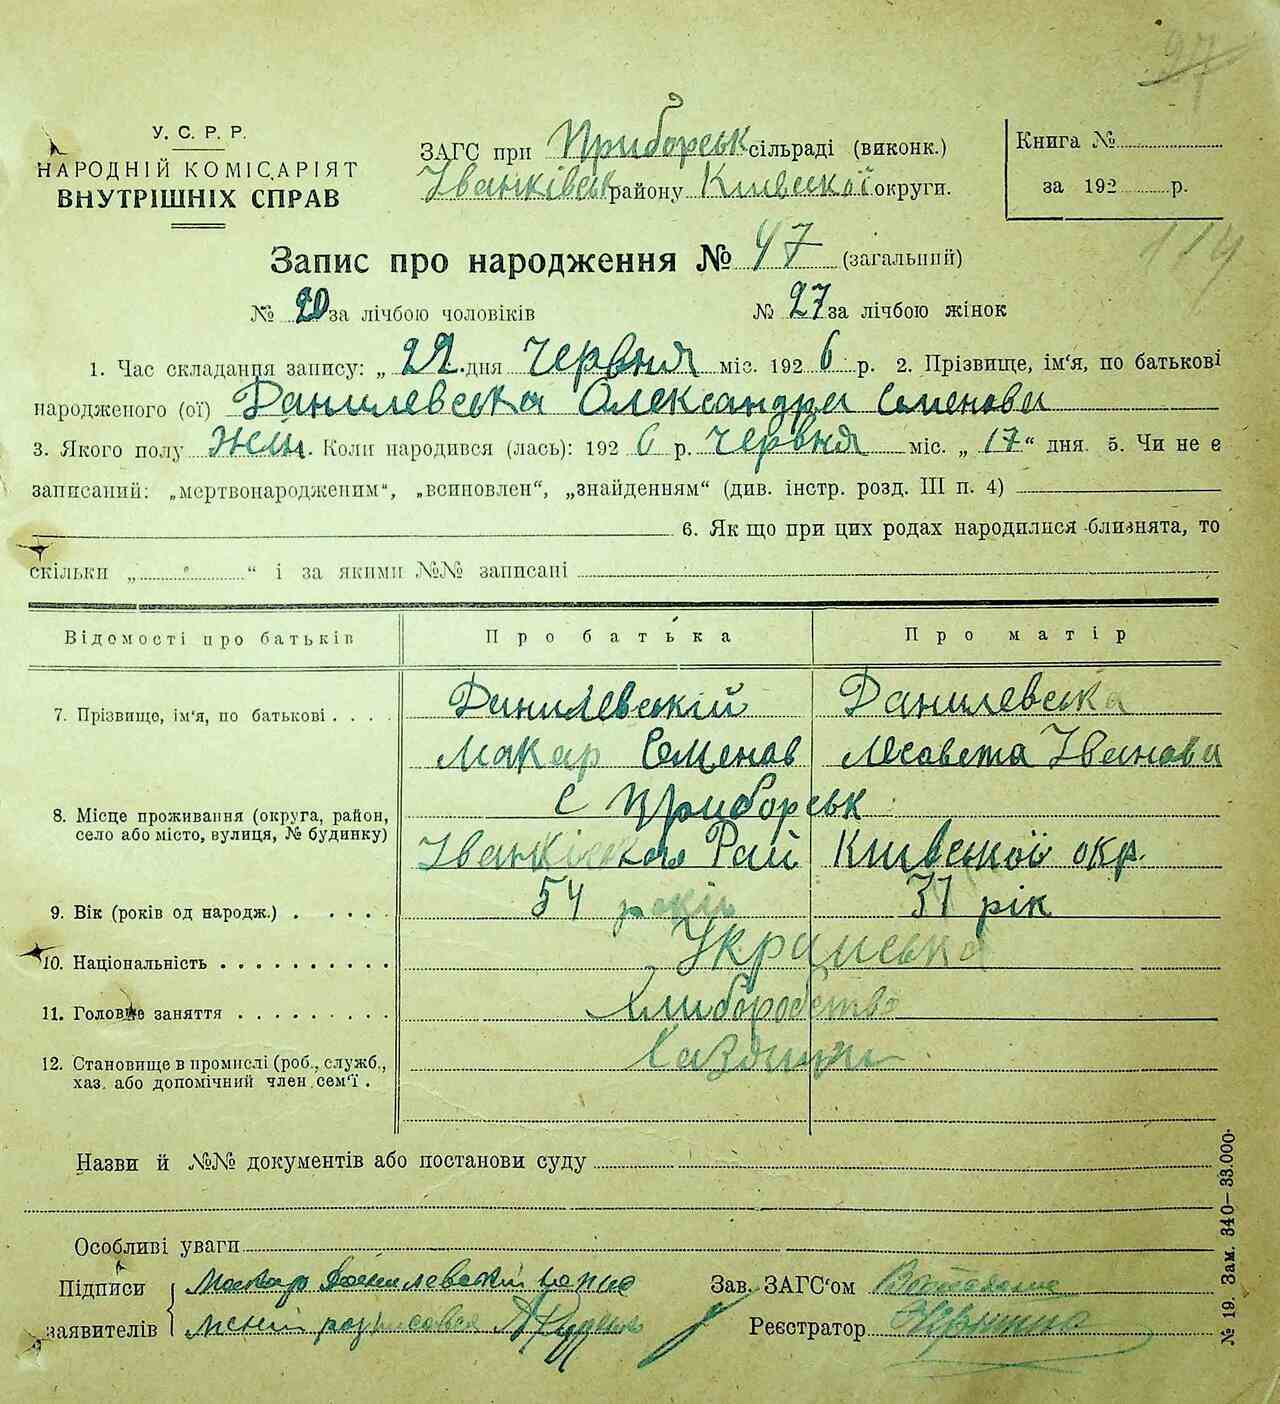 27
У. С. Р. Р.
НАРОДНІЙ КОМІСАРІЯТ
ВНУТРІШНІХ СПРАВ
ЗАГС при Приборськ сільраді (виконк.)
Іванківськ району Київської округи.
Книга №
за 192 р.
114
Запис про народження № 47 (загальний)
№ 20 за лічбою чоловіків № 27 за лічбою жінок
1. Час складання запису: „ 22 дня Червня міс. 192 6 р. 2. Прізвище, ім'я, по батькові
народженого (ої) Данилевська Олександра Семенова
3. Якого полу Жін. Коли народився (лась): 192 6 р. Червня міс. „ 17 “ дня. 5. Чи не є
записаний: „мертвонародженим“, „всиновлен“, „знайденням“ (див. інстр. розд. III п. 4)
6. Як що при цих родах народилися близнята, то
скільки „ “ і за якими №№ записані
Відомості про батьків Про батька Про матір
7. Прізвище, ім'я, по батькові Данилевській Данилевська
Макар Семенов Лісавета Іванова
8. Місце проживання (округа, район,
село або місто, вулиця, № будинку)
С Приборськ
Рай Київської окр.
9. Вік (років од народж.) 54 років 31 рік
10. Національність Українська
11. Головне заняття Хлиборобство
12. Становище в промислі (роб., служб.,
хаз. або допомічний член сем'ї
Назви й №№ документів або постанови суду
Особливі уваги
Підписи Макар Данилевский
заявителів розписався
Зав. ЗАГС'ом
Реєстратор
№ 19. Зам. 340—33.000.